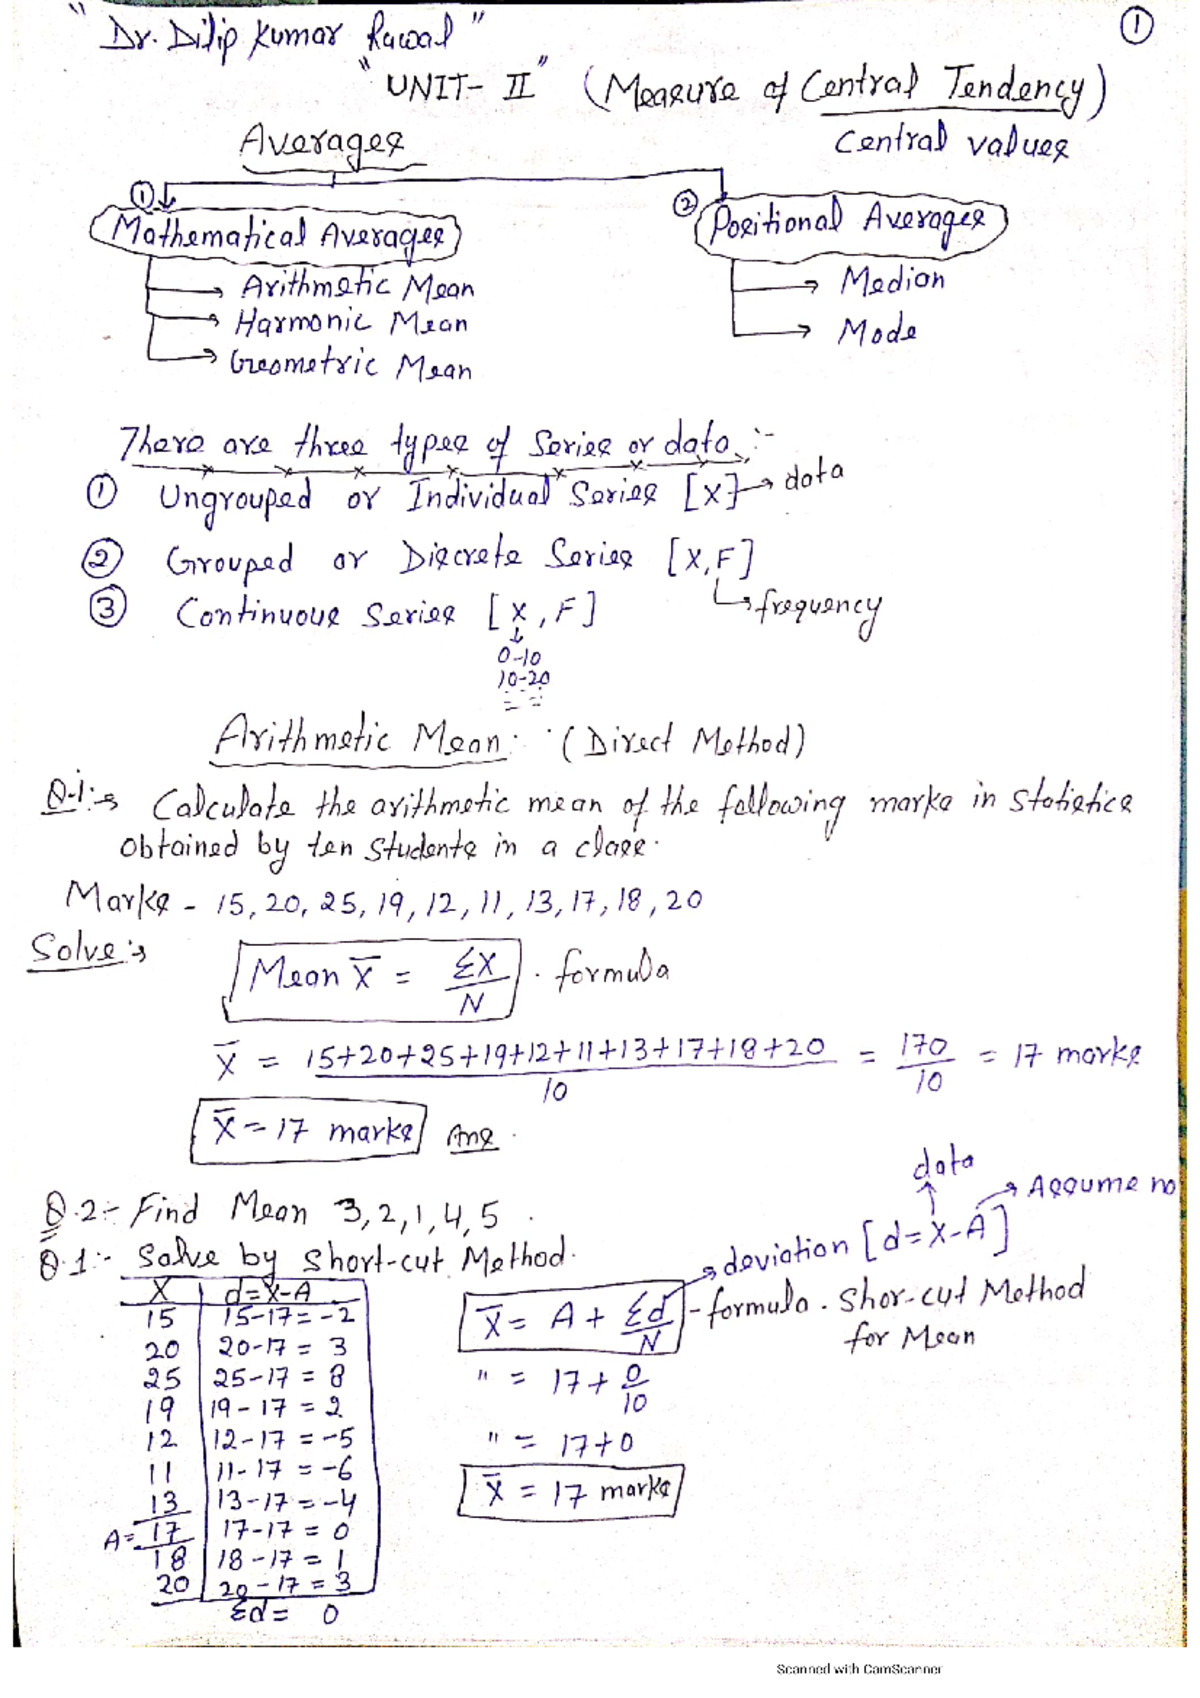 "Dr. Dilip Kumar Rawal" ①
"UNIT- II" (Measure of Central Tendency)
Averages Central values
① ②
Mathematical Averages Positional Averages
Arithmetic Mean Median
Harmonic Mean Mode
Geometric Mean
There are three types of Series or data :-
① Ungrouped or Individual Series [X] → data
② Grouped or Discrete Series [X, F]
③ Continuous Series [X, F] ↳ frequency
↓
0-10
10-20
= =
Arithmetic Mean : (Direct Method)
Q.1:→ Calculate the arithmetic mean of the following marks in statistics
obtained by ten students in a class.
Marks - 15, 20, 25, 19, 12, 11, 13, 17, 18, 20
Solve:→
Mean X̄ = ΣX/N . formula
X̄ = 15+20+25+19+12+11+13+17+18+20/10 = 170/10 = 17 marks
X̄ = 17 marks Ans.
data
Q.2:- Find Mean 3, 2, 1, 4, 5 . → Assume no
Q.1:- Solve by Short-cut Method. → deviation [d = X-A]
X d=X-A
15 15-17=-2 X̄ = A + Σd/N - formula . Shor-cut Method
20 20-17 = 3 for Mean
25 25-17 = 8 " = 17 + 0/10
19 19-17 = 2
12 12-17 = -5 " = 17+0
11 11-17 = -6
13 13-17 = -4 X̄ = 17 marks
A= 17 17-17 = 0
18 18-17 = 1
20 20-17 = 3
Σd = 0
Scanned with CamScanner